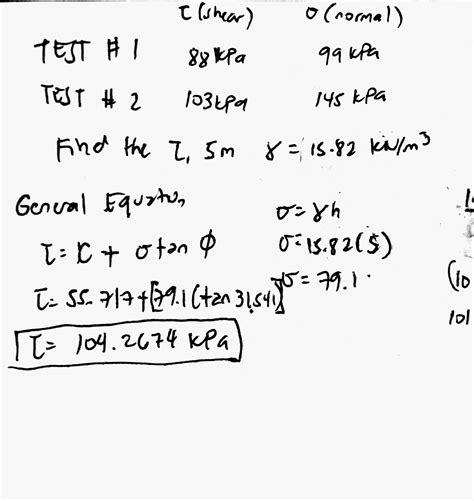 τ (shear) σ (normal)
TEST # 1 88 kPa 99 kPa
TEST # 2 103 kPa 145 kPa
Find the τ, 5m γ = 15.82 kN/m³
General Equation σ = γh
τ = C + σ tan φ σ = 15.82(5)
τ = 55.717 + [79.1 (tan 31.541)] σ = 79.1
τ = 104.2674 kPa
(10
101